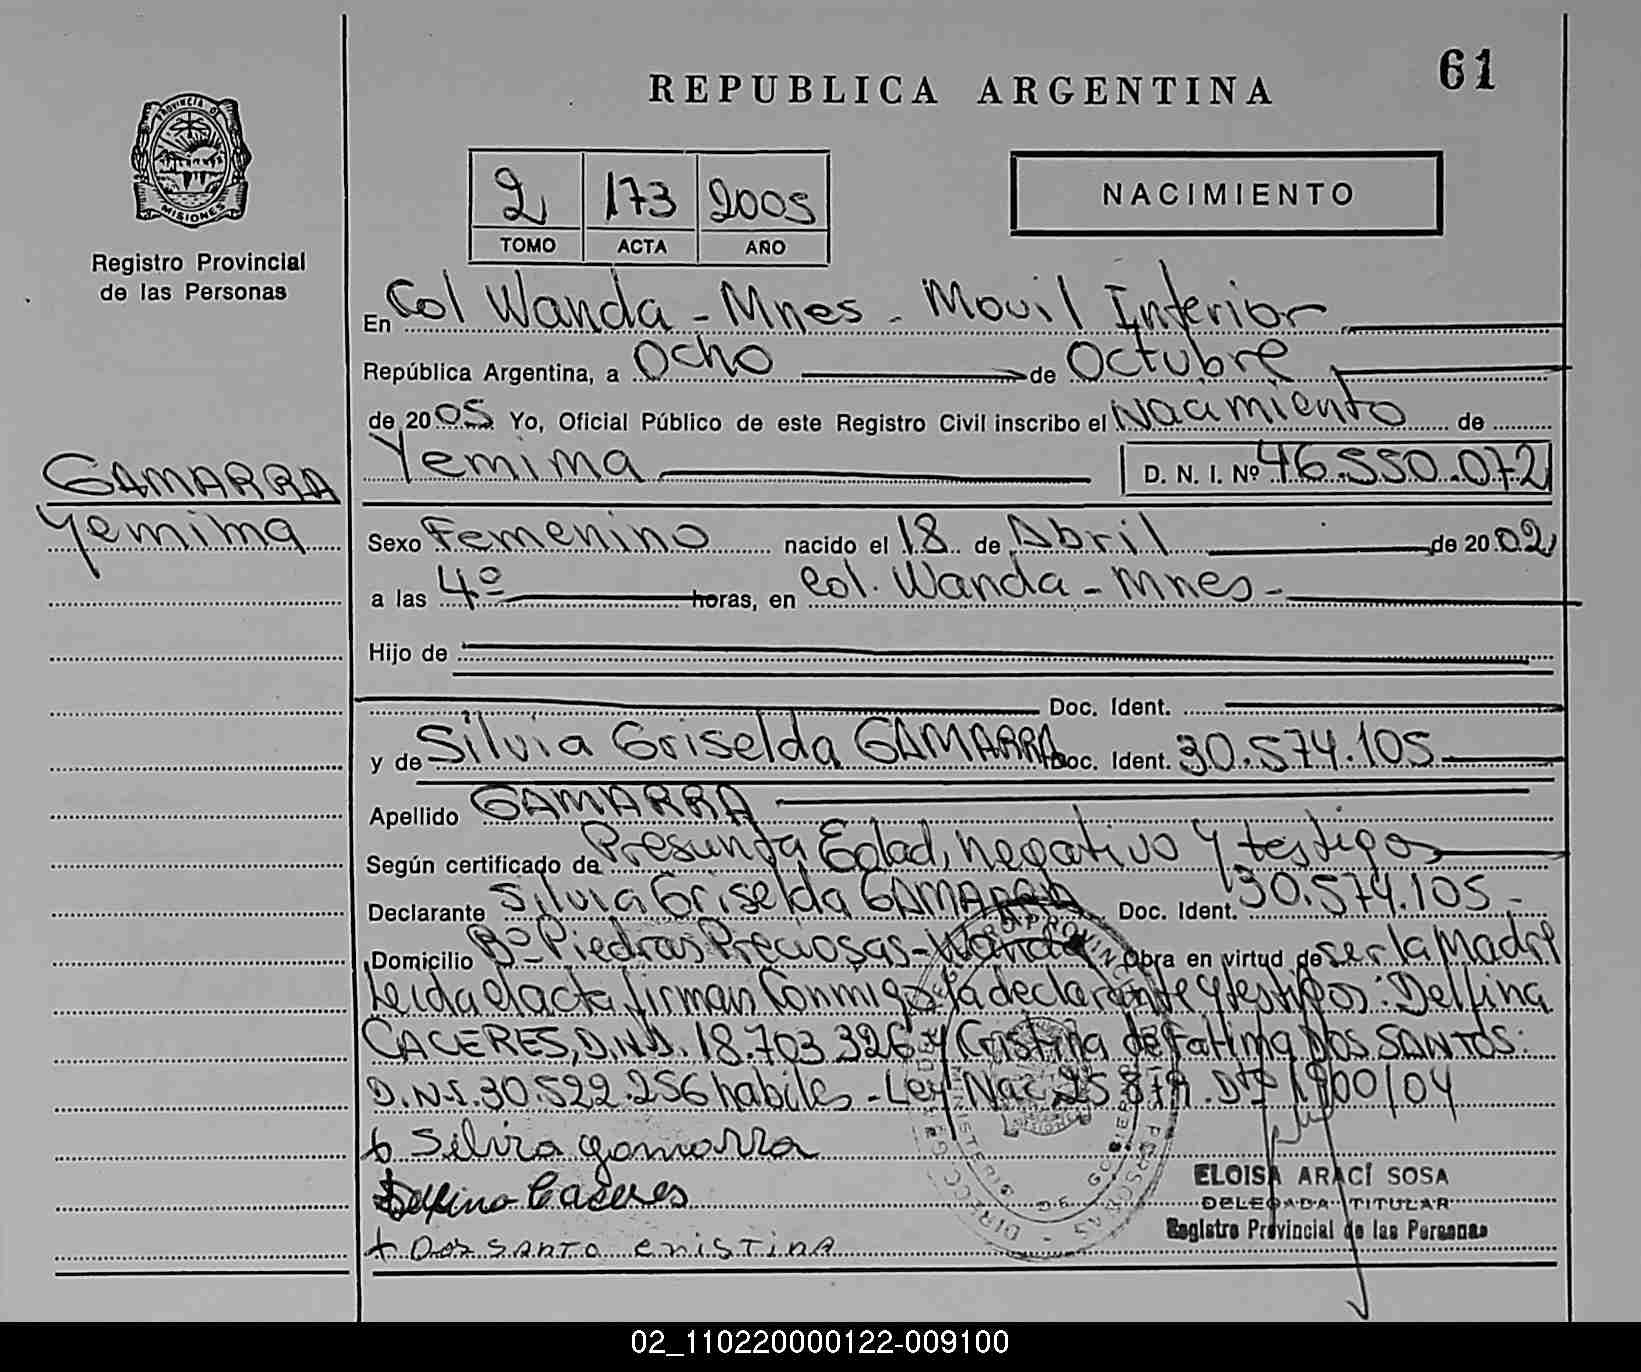 61
REPUBLICA ARGENTINA
PROVINCIA D
MISIONES
Registro Provincial
de las Personas
2 173 2005
TOMO ACTA AÑO
NACIMIENTO
En Col Wanda - Mnes - Movil Interior
República Argentina, a Ocho de Octubre
de 2005 Yo, Oficial Público de este Registro Civil inscribo el Nacimiento de
Yemima D. N. I. Nº 46.550.072
GAMARRA
Yemima
Sexo Femenino nacido el 18 de Abril de 2002
a las 4º horas, en Col. Wanda - Mnes -
Hijo de
Doc. Ident.
y de Silvia Griselda GAMARRA Doc. Ident. 30.574.105
Apellido GAMARRA
Según certificado de Presunta Edad, negativo y testigos
Declarante Silvia Griselda GAMARRA Doc. Ident. 30.574.105 -
Domicilio Bº Piedras Preciosas - Wanda Obra en virtud de ser la Madre
Leida el acta firman Conmigo la declarante y testigos: Delfina
CACERES, D.N.I. 18.703.326 y Cristina de Fatima DOS SANTOS:
D.N.I. 30.522.256 habiles - Ley Nac 25.819. Dto 1900/04
Silvia gamarra
Delfina Caceres
+ Dos SANTO CRISTINA
ELOISA ARACÍ SOSA
DELEGADA TITULAR
Registro Provincial de las Personas
02_110220000122-009100